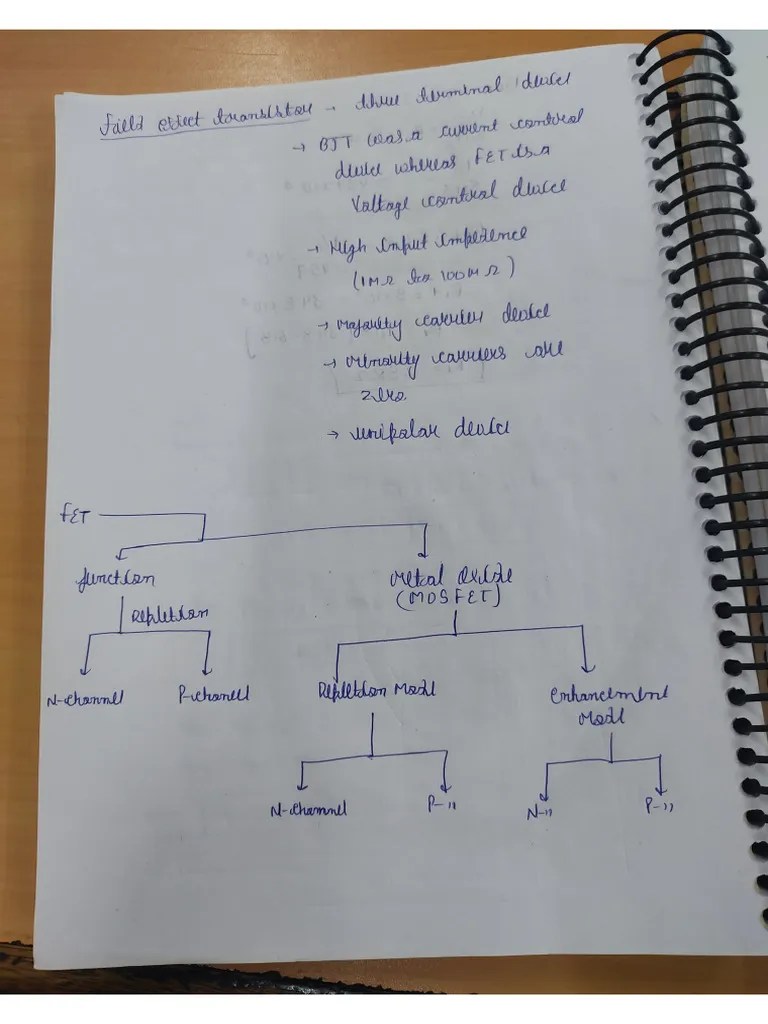 Field effect transistor → three terminal device
→ BJT was a current control
device whereas FET is a
Voltage control device
→ High input impedence
(1MΩ to 100MΩ)
→ Majority carrier device
→ Minority carriers are
zero.
→ unipolar device
FET
Junction
Metal Oxide
(MOSFET)
Depletion
N-channel
P-channel
Depletion Mode
Enhancement
Mode
N-channel
P-"
N-"
P-"